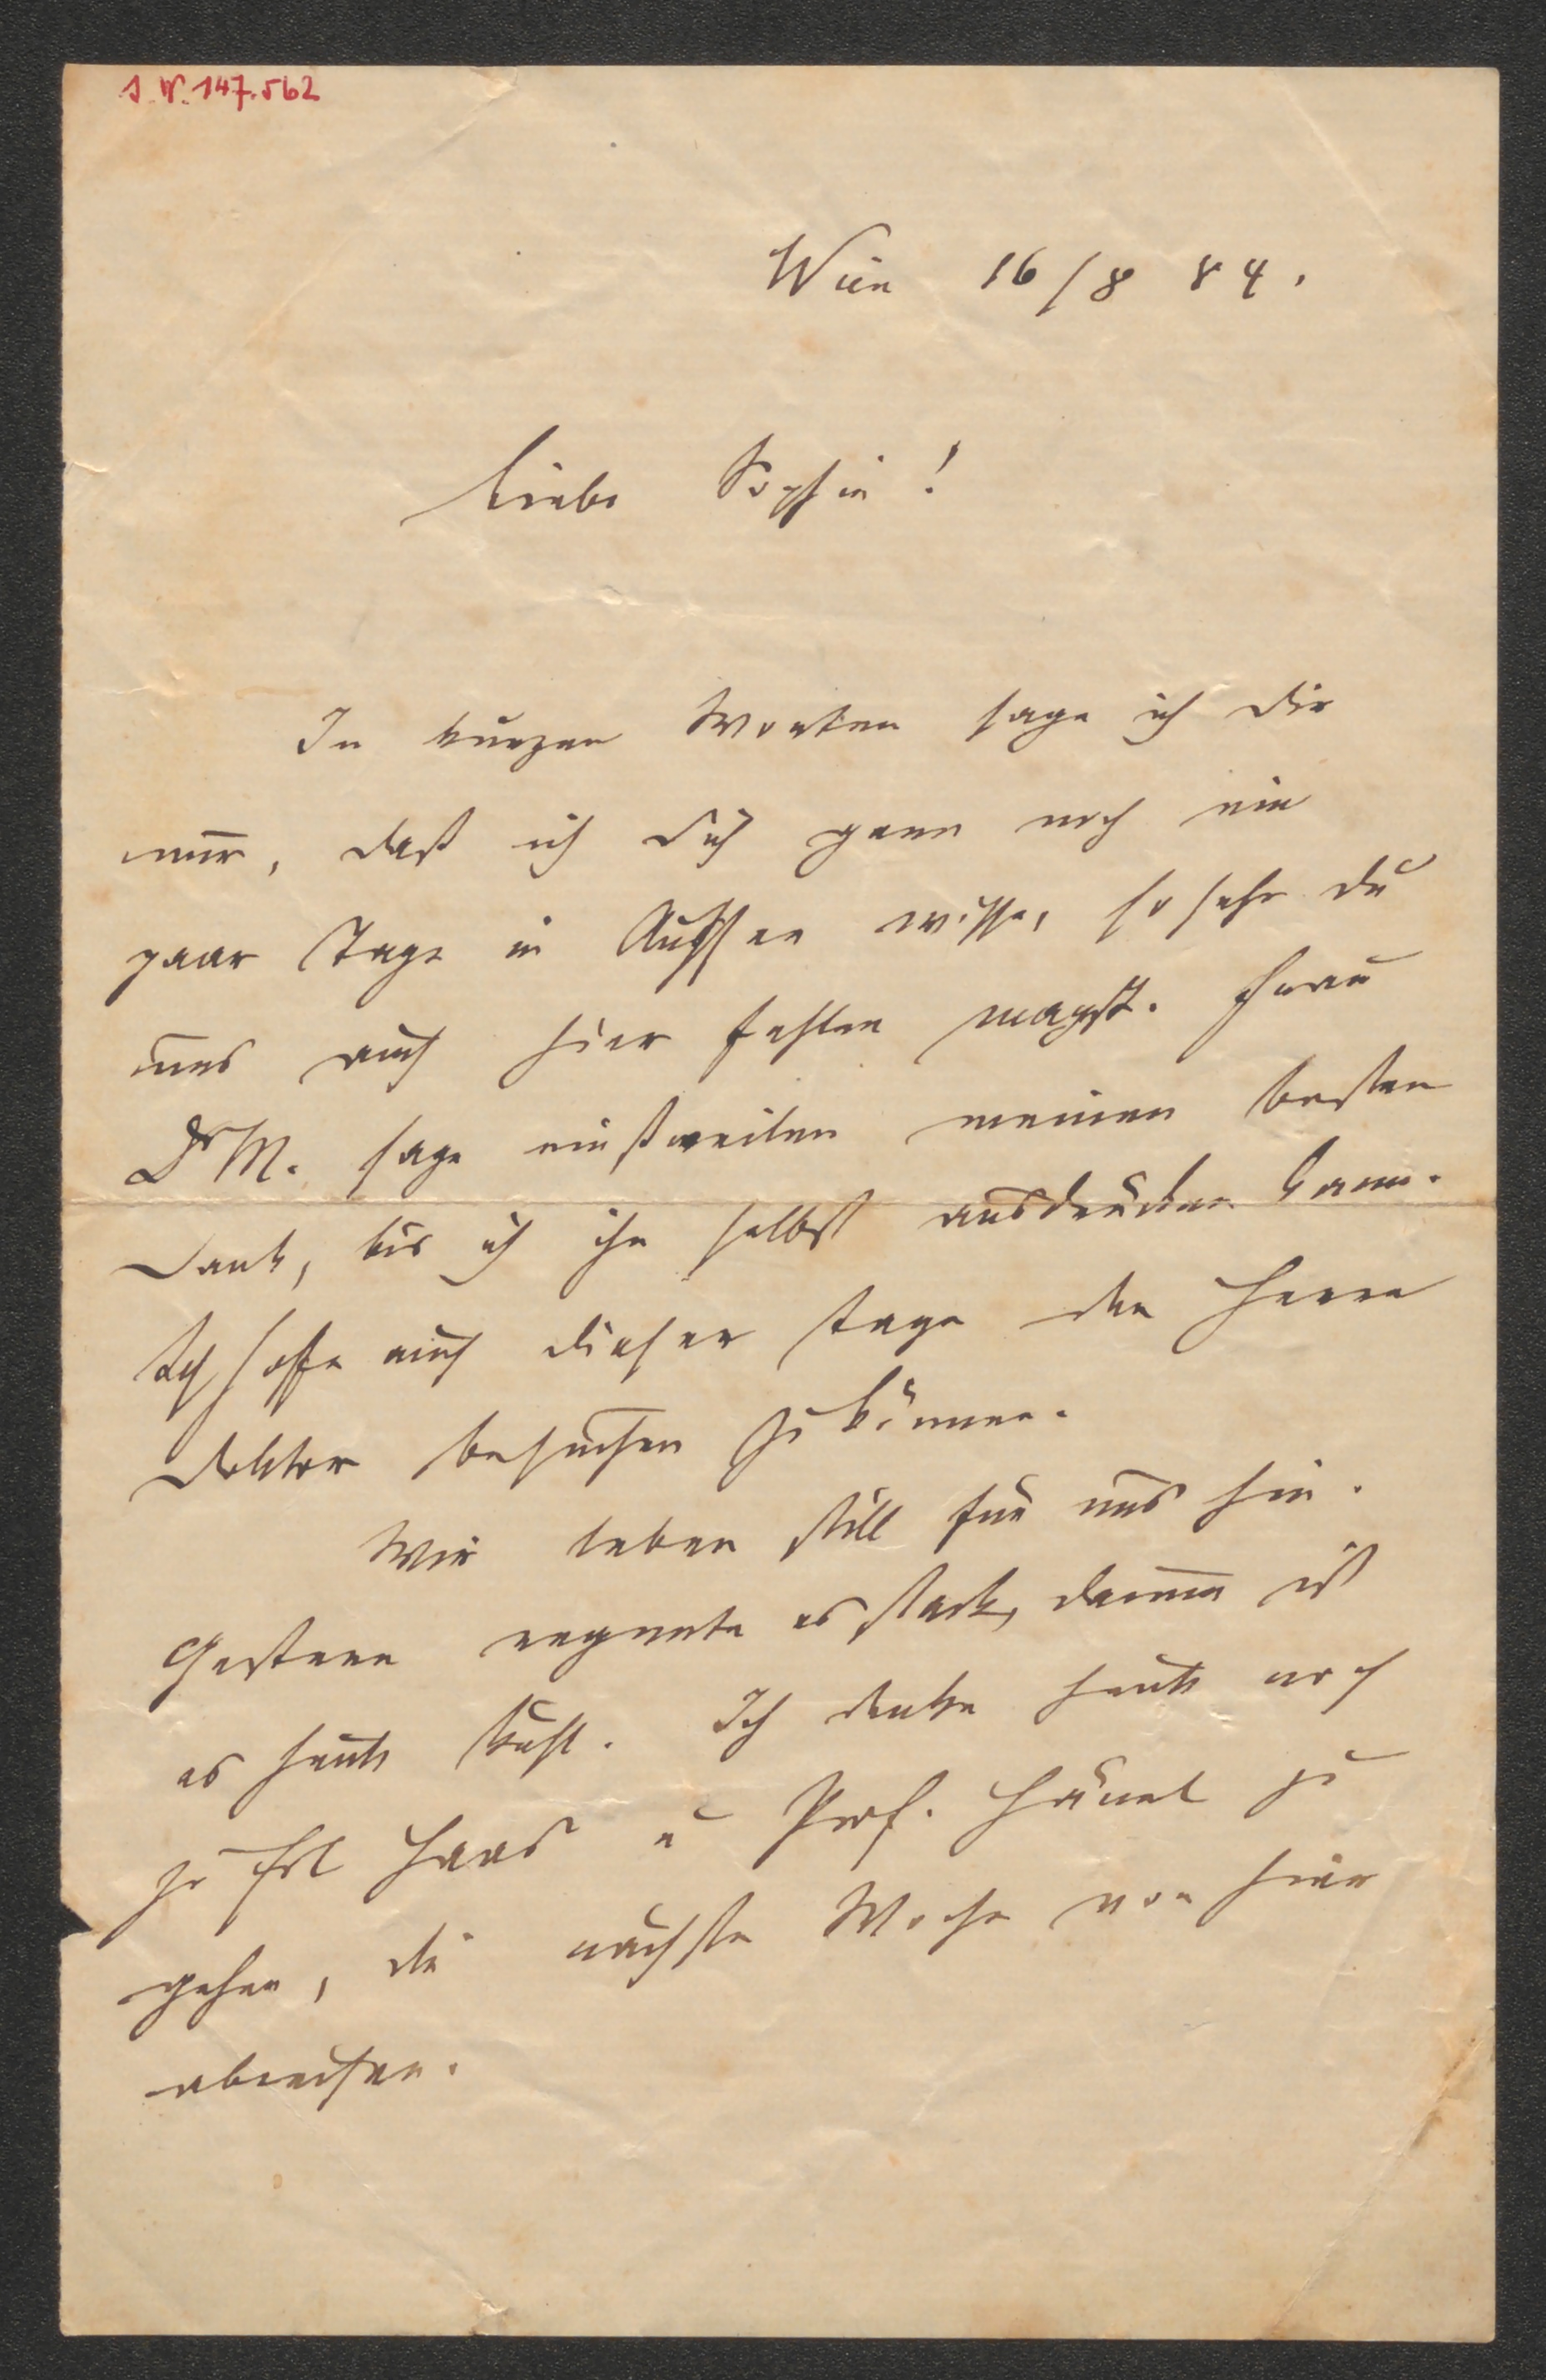 J. N. 147.562
Wien 16/8 84.
Liebe Sophie!
In kurzen Worten sage ich Dir
nur, daß ich Dich gern noch ein
paar Tage in Aussee wisse, so sehr du
uns auch hier fehlen magst. Frau
Dr M. sage einstweilen meinen besten
Dank, bis ich ihn selbst ausdrücken kann.
Ich hoffe auch dieser Tage den Herrn
Doktor besuchen zu können.
Wir leben still für uns hin.
Gestern regnete es stark, darum ist
es heute kühl. Ich denke heute noch
zu Frl Haas u Prof. Hänel zu
gehen, die nächste Woche von hier
abreisen.